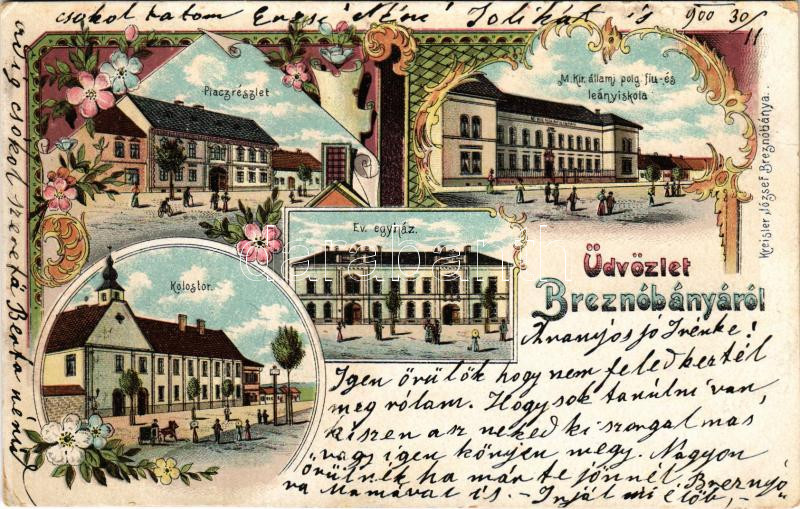 csokol tatom Encsi Néni Jolikát is 900 30/11
Piaczrészlet
M. Kir. állami polg. fiu- és
leányiskola
Kreisler József Breznóbánya.
Ev. egyház.
Kolostor.
darabanth
Üdvözlet
Breznóbányáról
Aranyos jó Irénke!
Igen örülök hogy nem feledkeztél
meg rólam. Hogy sok tanulni van,
hiszen az neked ki szorgalmas
vagy igen könyen megy. Nagyon
örülnék ha már te jönnél Breznyó
ra Mamával is. – Írjál mi előb, –
csokol szerető Berta néni